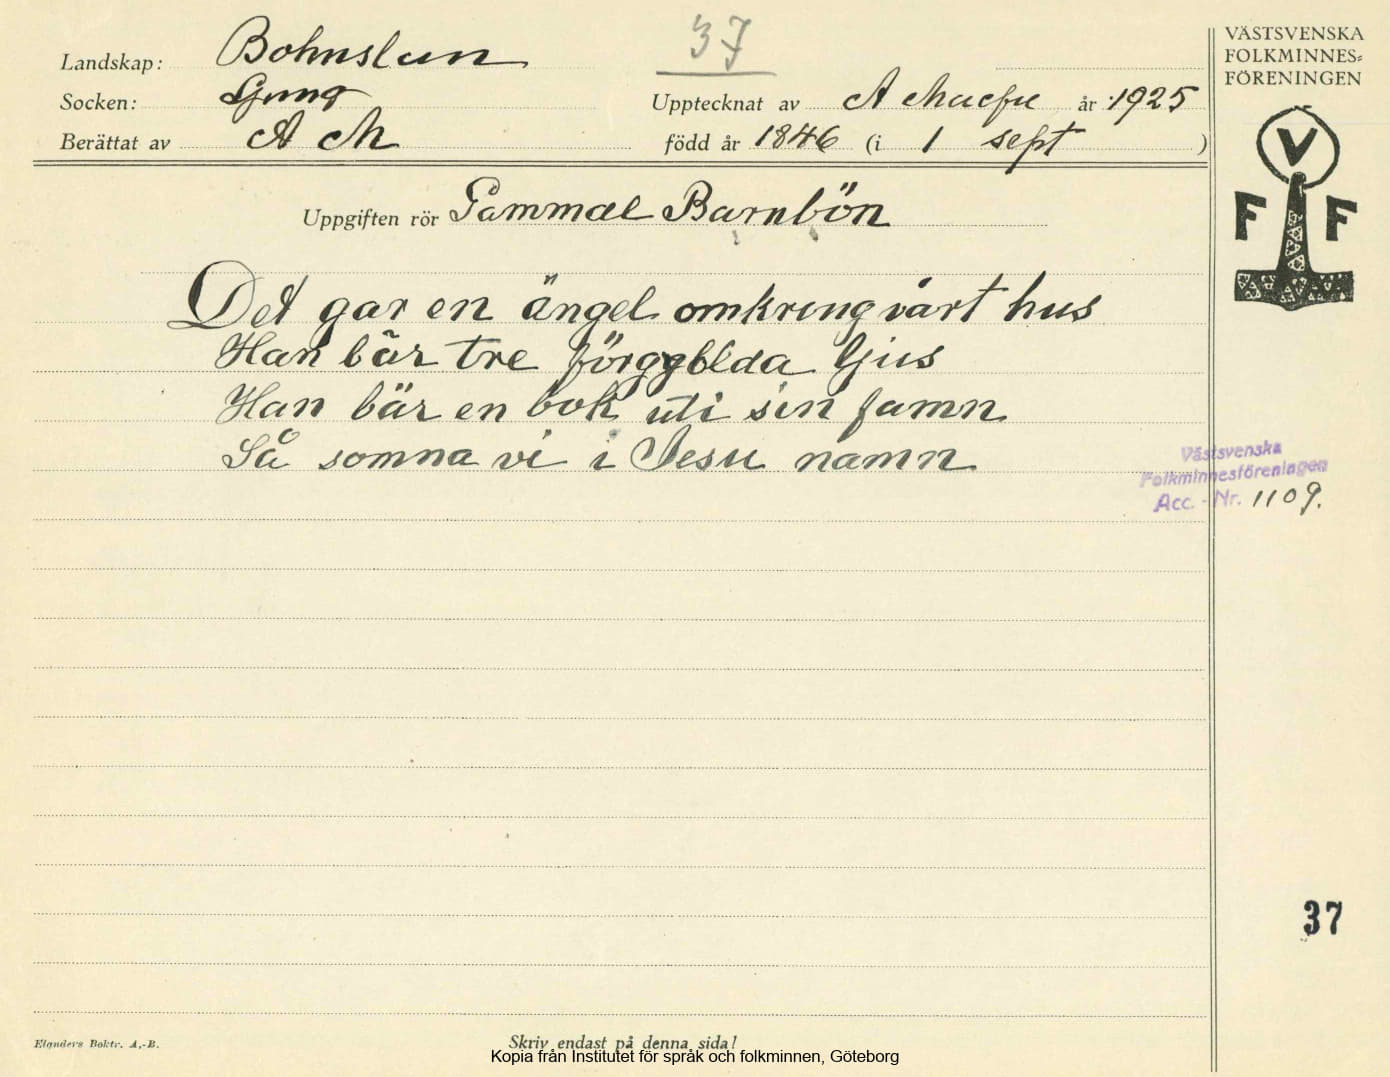 37
VÄSTSVENSKA
FOLKMINNES=
FÖRENINGEN
Landskap: Bohuslän
Socken: Ljung
Upptecknat av A år 1925
Berättat av A M
född år 1846 (i 1 sept )
V
F F
Uppgiften rör Gammal Barnbön
Det gar en ängel omkring vårt hus
Han bär tre förgyblda ljus
Han bär en bok uti sin famn
Så somna vi i Jesu namn
Västsvenska
Folkminnesföreningen
Acc. - Nr. 1109.
37
Elanders Boktr. A.-B.
Skriv endast på denna sida!
Kopia från Institutet för språk och folkminnen, Göteborg